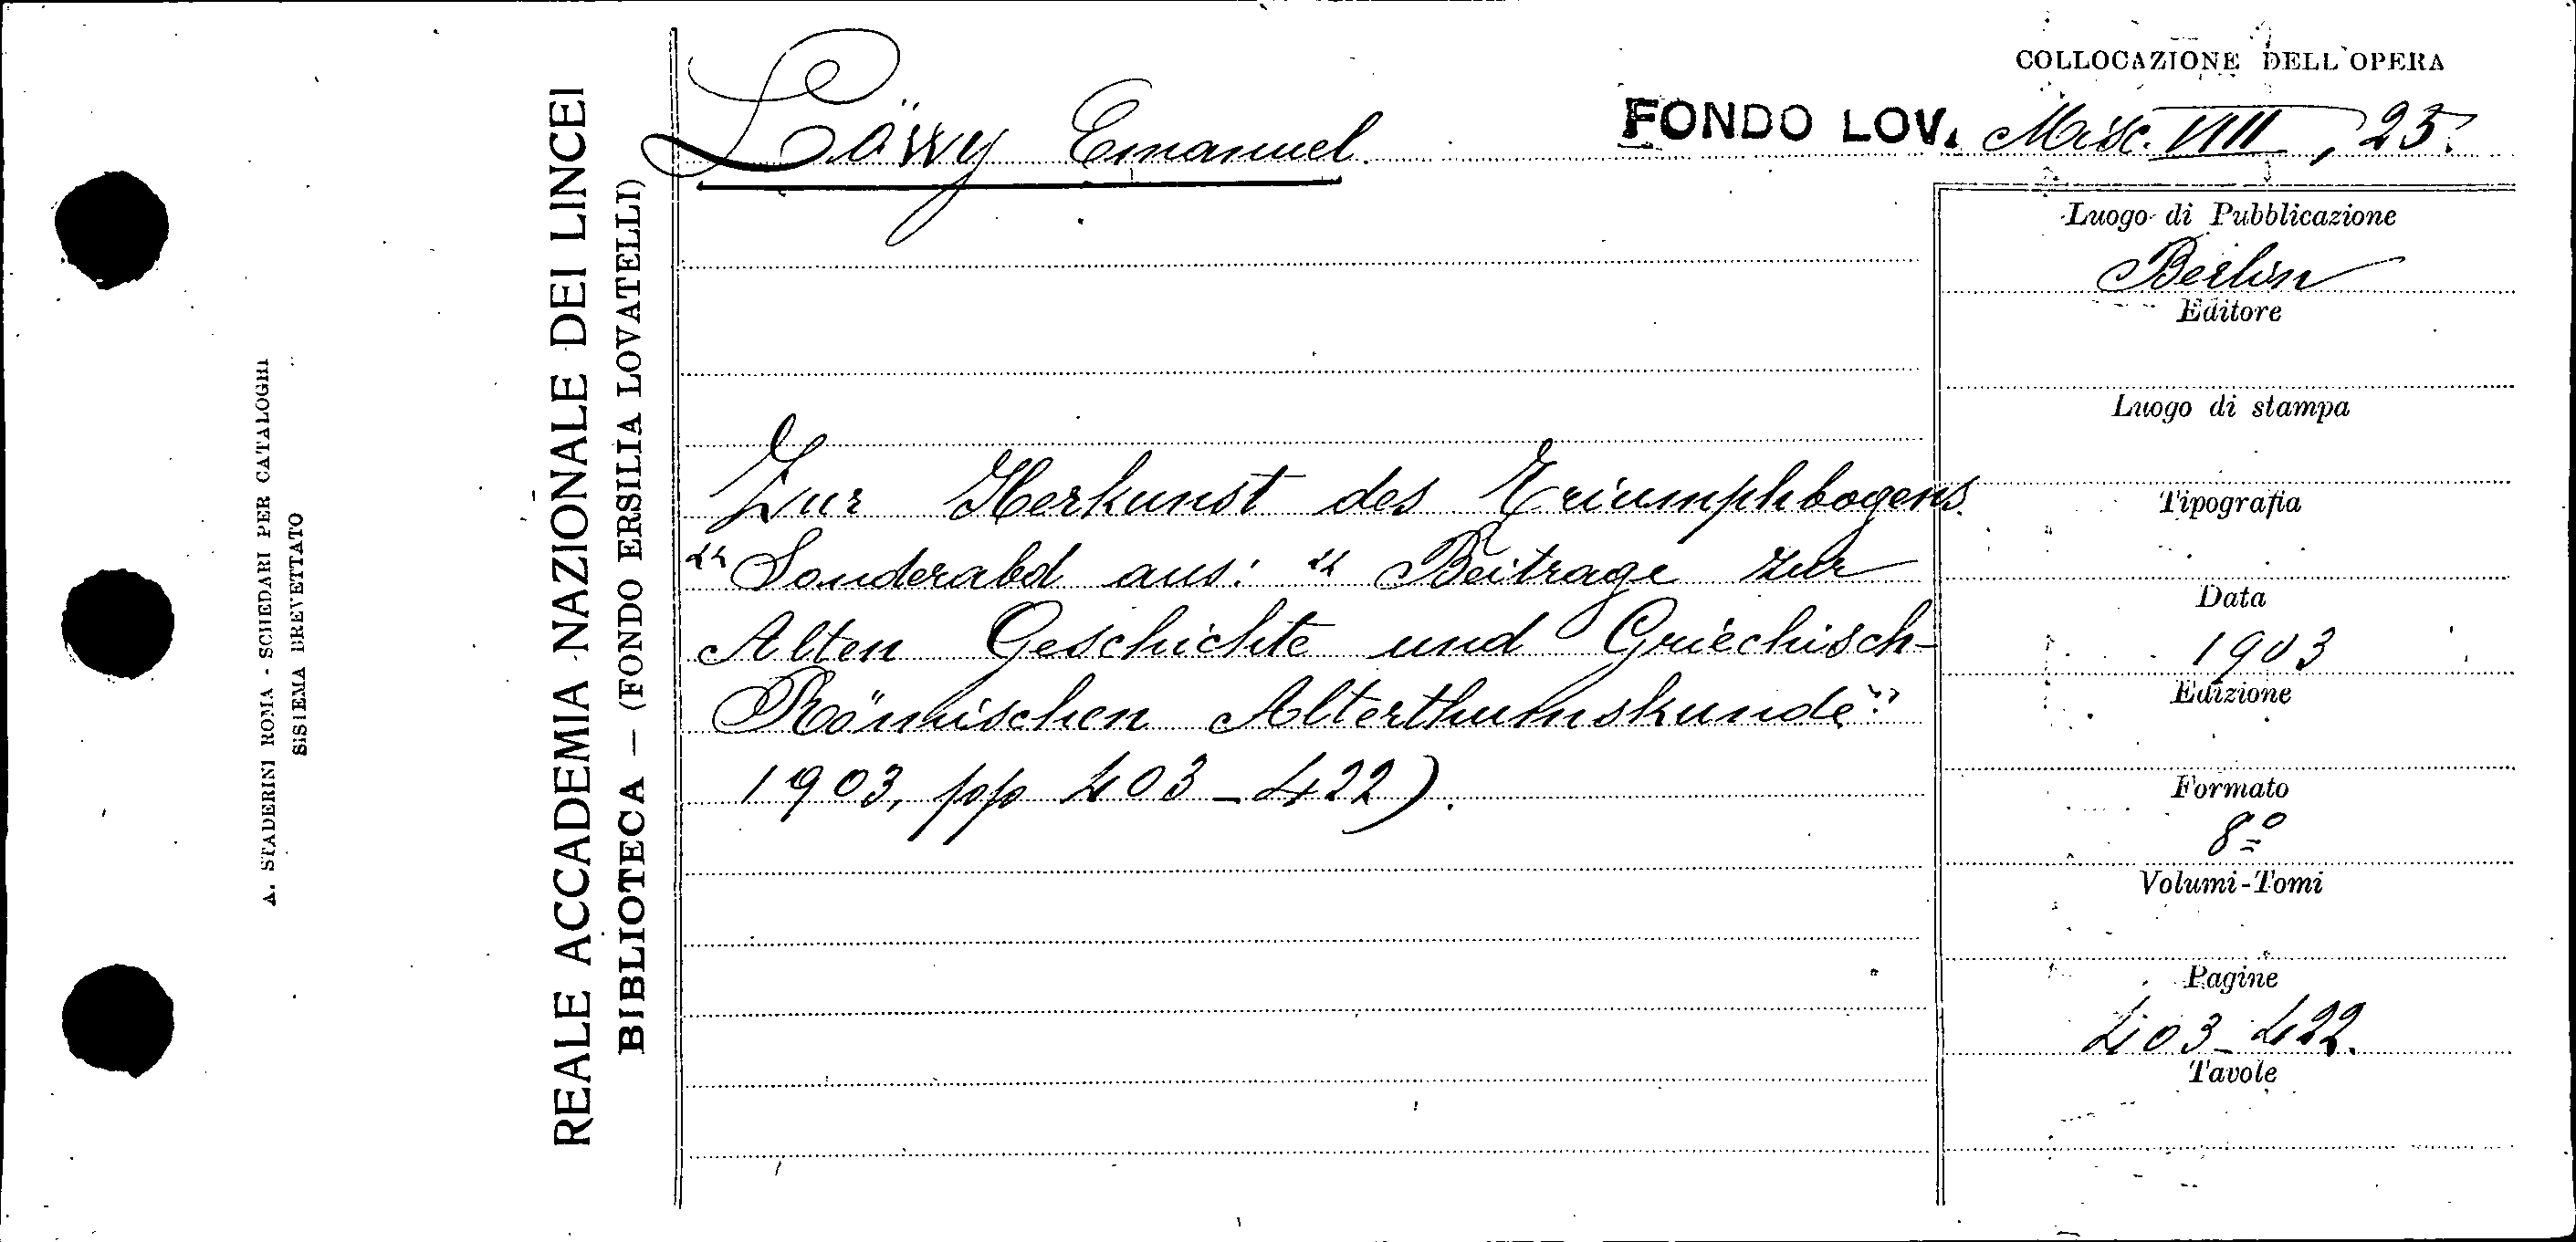 COLLOCAZIONE DELL'OPERA
Löwy Emanuel.
FONDO LOV. Misc. VIII, 25.
Zur Herkunst des Triumphbogens
"Sonderabd aus: " Beitrage zur
Alten Geschichte und Griechisch-
Römischen Alterthumskunde"
1903, pp 403-422).
Luogo di Pubblicazione
Berlin
Editore
Luogo di stampa
Tipografia
Data
1903
Edizione
Formato
8º
Volumi-Tomi
Pagine
403-422.
Tavole
REALE ACCADEMIA NAZIONALE DEI LINCEI
BIBLIOTECA — (FONDO ERSILIA LOVATELLI)
A. STADERINI ROMA - SCHEDARI PER CATALOGHI
SISTEMA BREVETTATO